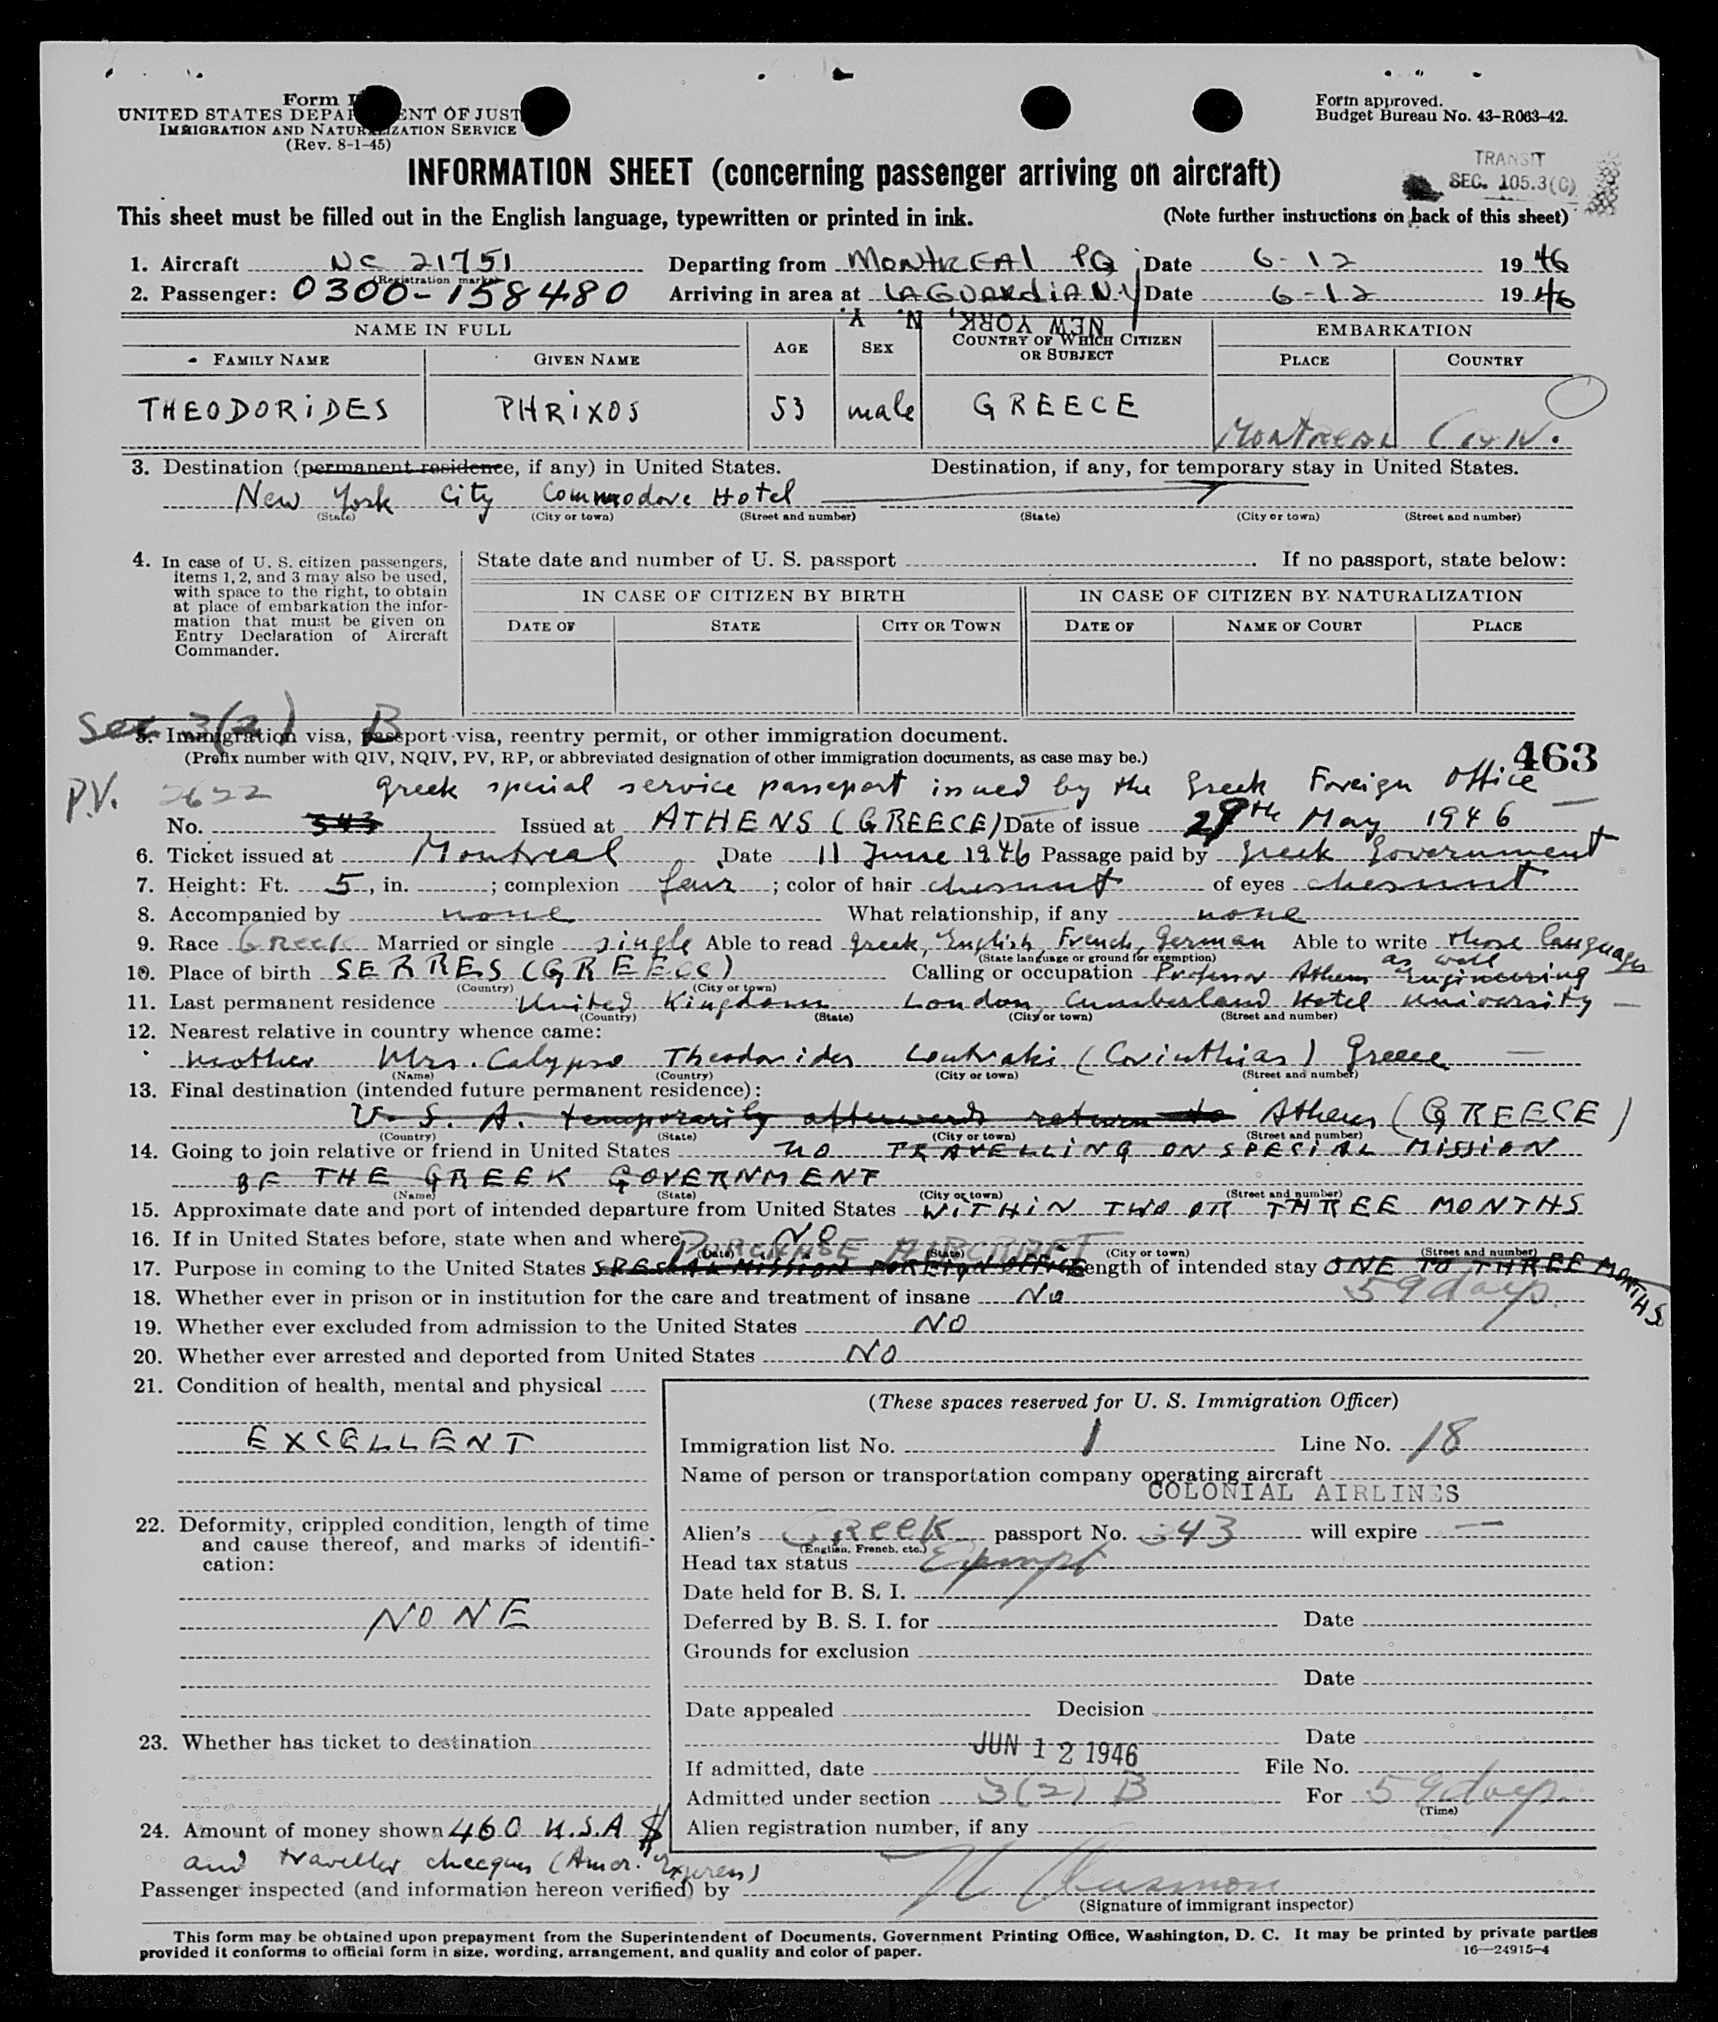 Form I
UNITED STATES DEPA ENT OF JUST
IMMIGRATION AND NATURALIZATION SERVICE
(Rev. 8-1-45)
Form approved.
Budget Bureau No. 43-R063-42.
INFORMATION SHEET (concerning passenger arriving on aircraft)
TRANSIT
SEC. 105.3(C)
This sheet must be filled out in the English language, typewritten or printed in ink. (Note further instructions on back of this sheet)
1. Aircraft NC 21751 Departing from MONTREAL PQ Date 6-12 1946
(Registration marks)
2. Passenger: 0300-158480 Arriving in area at LAGUARDIA N.Y. Date 6-12 1946
NEW YORK, N. Y.
NAME IN FULL AGE SEX COUNTRY OF WHICH CITIZEN OR SUBJECT EMBARKATION
FAMILY NAME GIVEN NAME PLACE COUNTRY
THEODORIDES PHRIXOS 53 male GREECE Montreal Can.
3. Destination (permanent residence, if any) in United States. Destination, if any, for temporary stay in United States.
New York City Commodore Hotel
(State) (City or town) (Street and number) (State) (City or town) (Street and number)
4. In case of U. S. citizen passengers, items 1, 2, and 3 may also be used, with space to the right, to obtain at place of embarkation the information that must be given on Entry Declaration of Aircraft Commander.
State date and number of U. S. passport . If no passport, state below:
IN CASE OF CITIZEN BY BIRTH IN CASE OF CITIZEN BY NATURALIZATION
DATE OF STATE CITY OR TOWN DATE OF NAME OF COURT PLACE
Sec 3(2) B
5. Immigration visa, passport visa, reentry permit, or other immigration document.
(Prefix number with QIV, NQIV, PV, RP, or abbreviated designation of other immigration documents, as case may be.)
463
P.V. 2622 Greek special service passport issued by the Greek Foreign Office
No. 343 Issued at ATHENS (GREECE) Date of issue 29th May 1946
6. Ticket issued at Montreal Date 11 June 1946 Passage paid by Greek Government
7. Height: Ft. 5, in. ; complexion fair ; color of hair chesnut of eyes chesnut
8. Accompanied by none What relationship, if any none
9. Race Greek Married or single single Able to read Greek, English, French, German Able to write those languages as well
(State language or ground for exemption)
10. Place of birth SERRES (GREECE) Calling or occupation Professor Athens Engineering
(Country) (City or town)
11. Last permanent residence United Kingdom London, Cumberland Hotel University
(Country) (State) (City or town) (Street and number)
12. Nearest relative in country whence came:
mother Mrs. Calypso Theodorides Loutraki (Corinthias) Greece
(Name) (Country) (City or town) (Street and number)
13. Final destination (intended future permanent residence):
U. S. A. temporarily afterwards return to Athens (GREECE)
(Country) (State) (City or town) (Street and number)
14. Going to join relative or friend in United States NO TRAVELLING ON SPECIAL MISSION
OF THE GREEK GOVERNMENT
(Name) (State) (City or town) (Street and number)
15. Approximate date and port of intended departure from United States WITHIN TWO OR THREE MONTHS
16. If in United States before, state when and where NO
PURCHASE AIRCRAFT
(Date) (State) (City or town) (Street and number)
17. Purpose in coming to the United States SPECIAL MISSION FOREIGN OFFICE Length of intended stay ONE TO THREE MONTHS
59 days.
18. Whether ever in prison or in institution for the care and treatment of insane No
19. Whether ever excluded from admission to the United States NO
20. Whether ever arrested and deported from United States NO
21. Condition of health, mental and physical
EXCELLENT
22. Deformity, crippled condition, length of time and cause thereof, and marks of identification:
NONE
23. Whether has ticket to destination
24. Amount of money shown 460 U.S.A $
and traveller cheques (Amer. Express)
(These spaces reserved for U. S. Immigration Officer)
Immigration list No. 1 Line No. 18
Name of person or transportation company operating aircraft
COLONIAL AIRLINES
Alien's Greek passport No. 343 will expire —
(English, French, etc.)
Head tax status Exempt
Date held for B. S. I.
Deferred by B. S. I. for Date
Grounds for exclusion
Date
Date appealed Decision
Date
If admitted, date JUN 12 1946 File No.
Admitted under section 3(2) B For 59 days.
(Time)
Alien registration number, if any
Passenger inspected (and information hereon verified) by
(Signature of immigrant inspector)
This form may be obtained upon prepayment from the Superintendent of Documents, Government Printing Office, Washington, D. C. It may be printed by private parties
provided it conforms to official form in size, wording, arrangement, and quality and color of paper.
16—24915-4